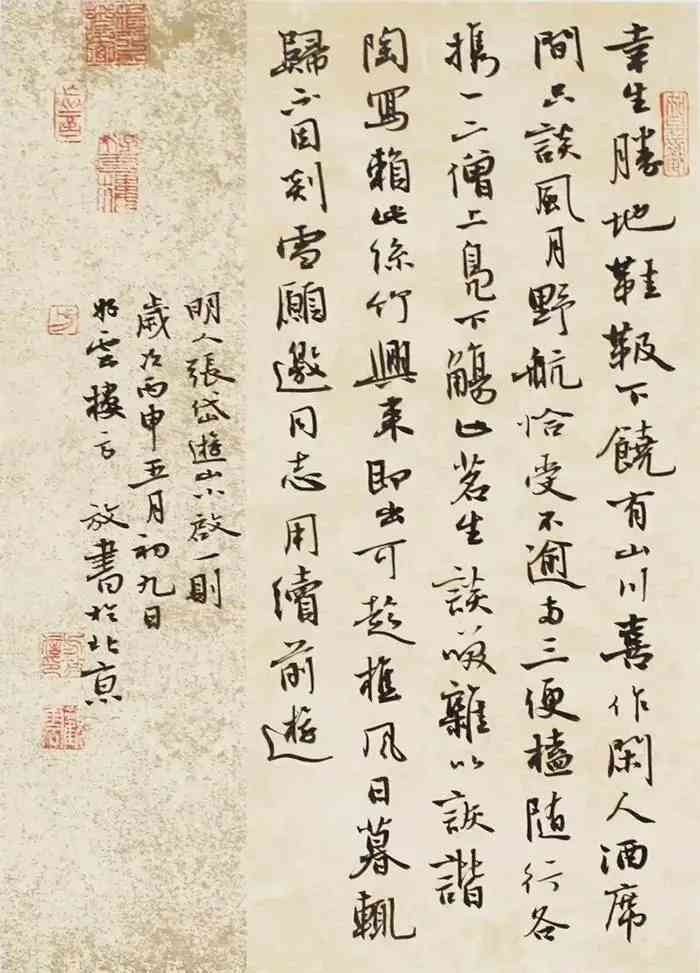 幸生勝地鞋靸下饒有山川喜作閑人酒席
間只談風月野航恰受不逾兩三便榼隨行各
攜一二僧上鳧下觴止茗生談咲雜以詼諧
陶寫賴此絲竹興來即出可趁樵風日暮輒
歸不因剡雪願邀同志用續前遊
明人張岱遊山小啟一則
歲次丙申五月初九日
雲樓方放書於北京